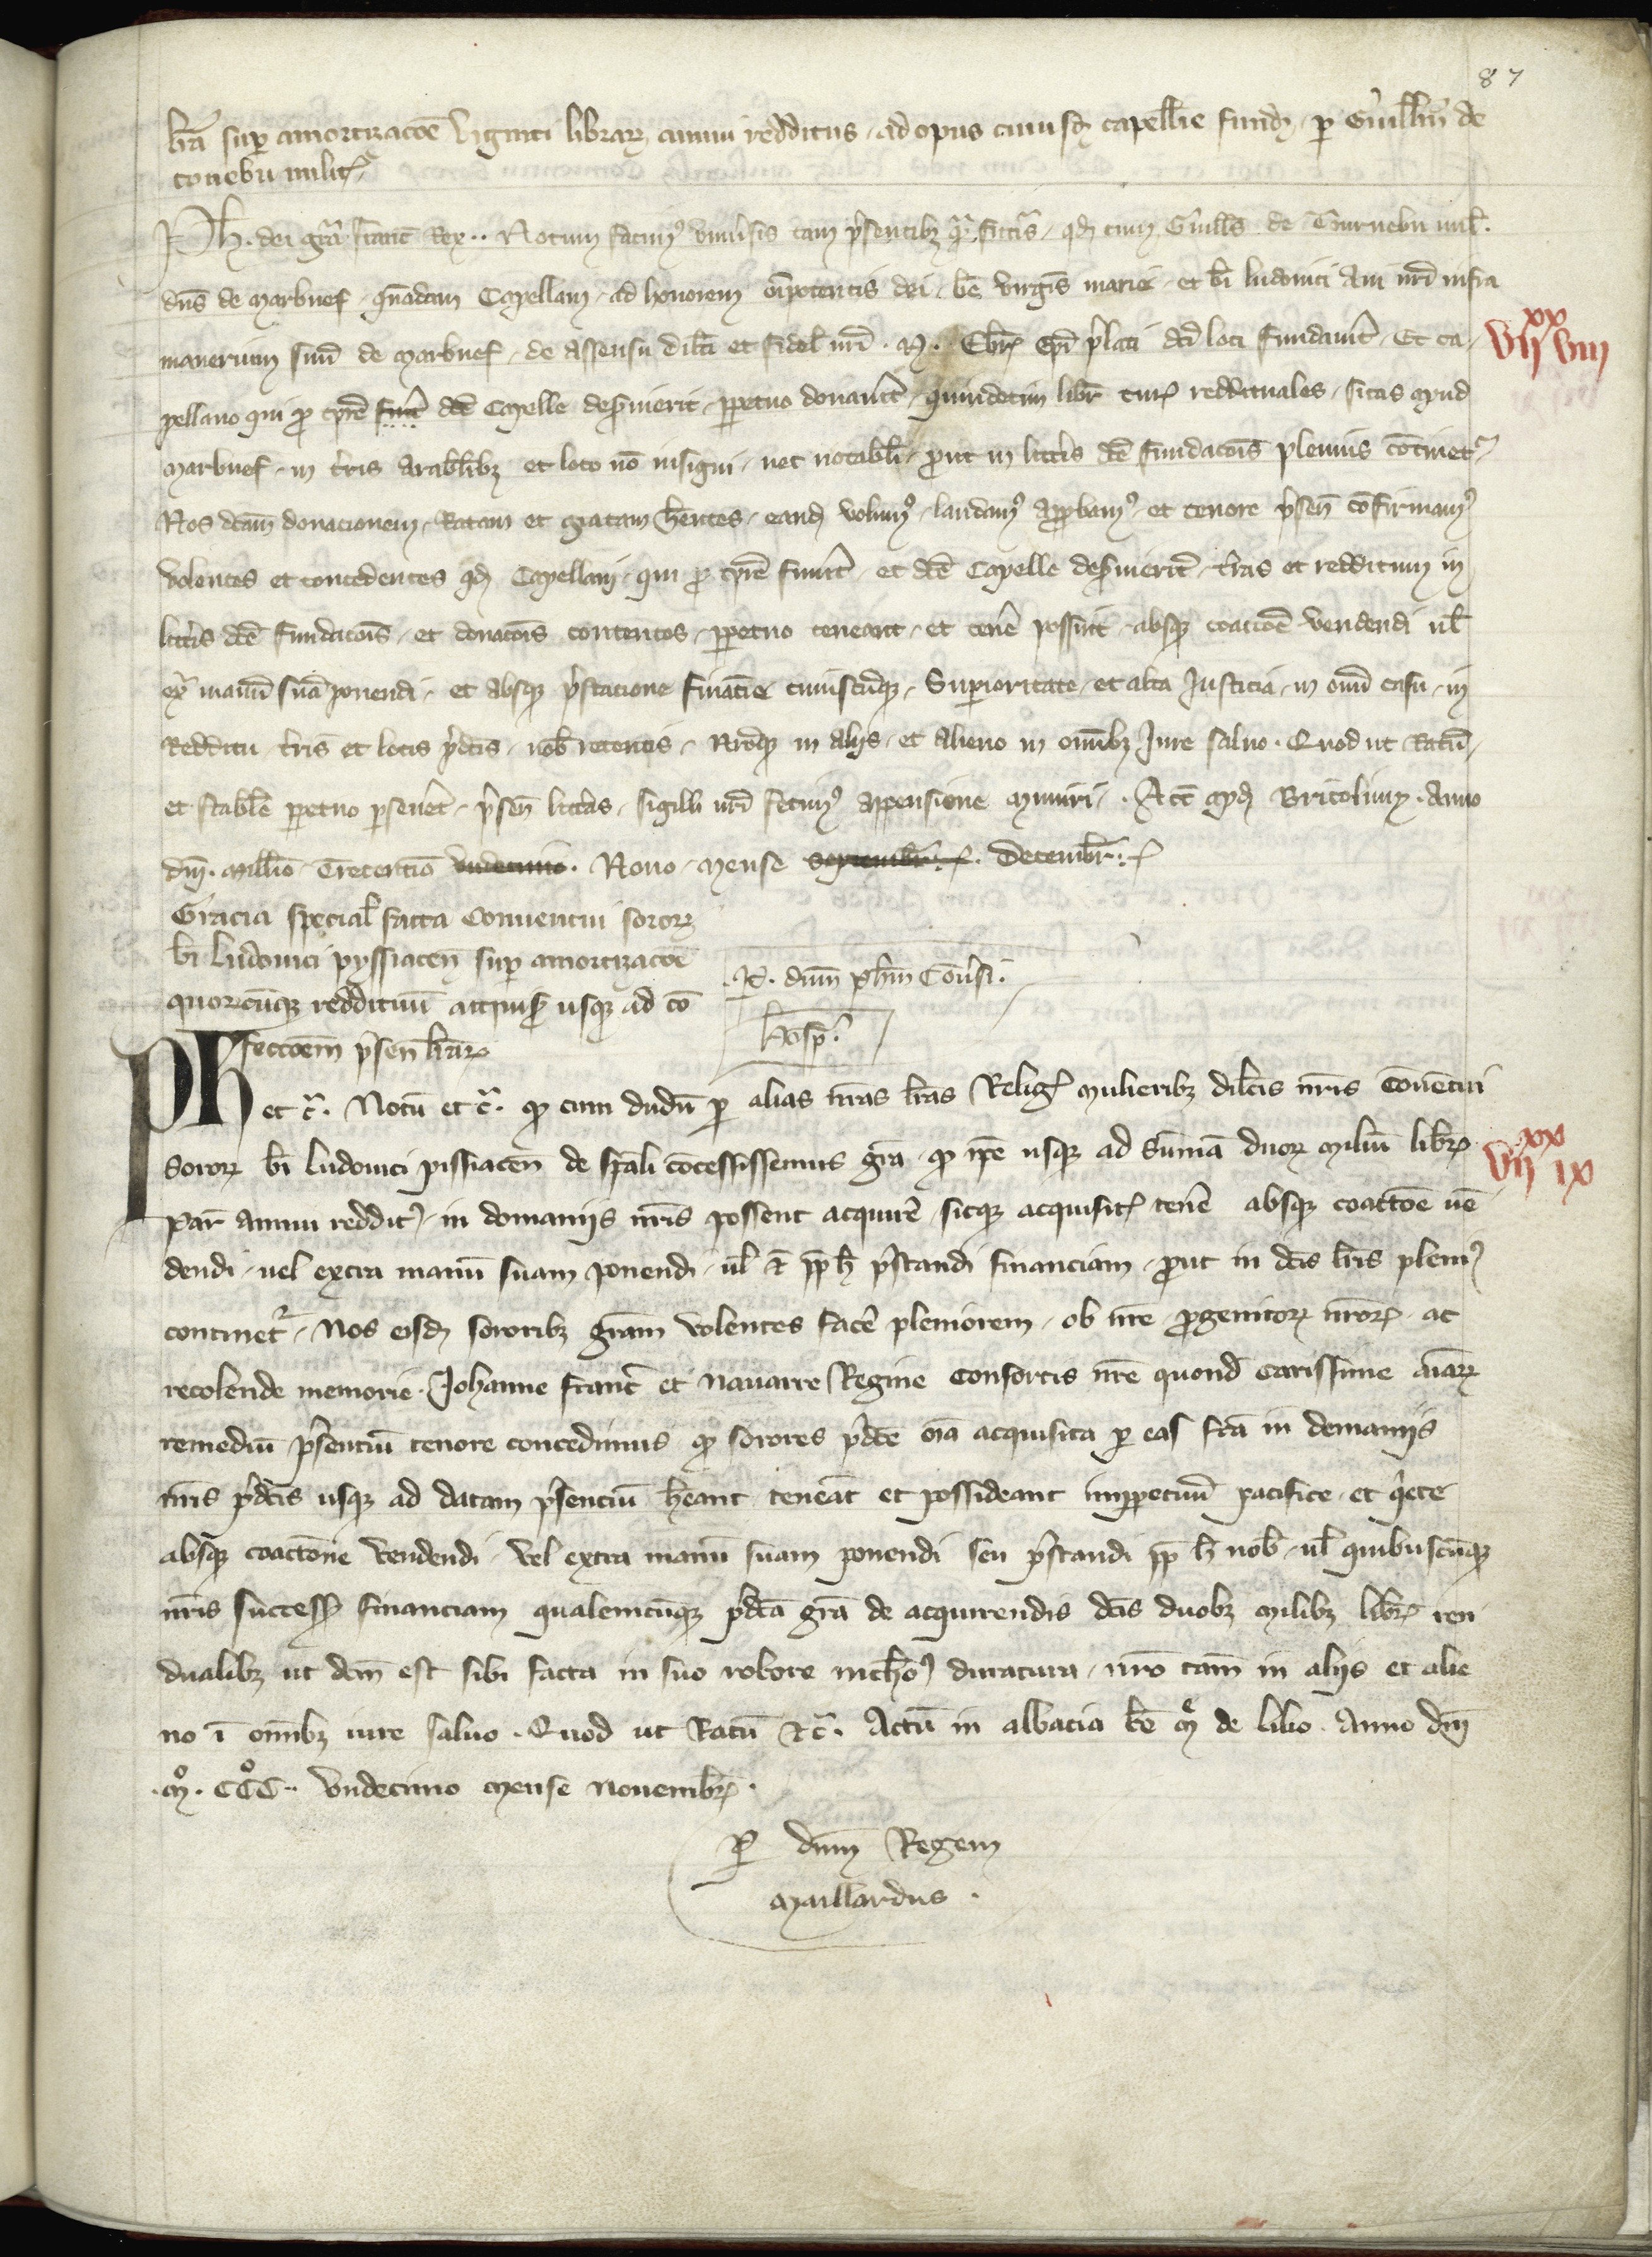 87
lr̃a sup amortizacõe viginti librarꝝ annui redditus, ad opus cuiusdã capellie fundã, p Guill̃m de
tornebu milit̃
Ph. dei gr̃a franc̃ Rex.. Notum facimꝰ vniũsis tam p̃sentibꝫ qr̃ futĩs, qđ cum Guill̃s de Turnebu mil̃.
dñs de Marbuef, quãdam Capellam, ad honorem oĩpotentis dei, bẽ virgĩs marie, et bĩ ludouici Aui nr̃i infra
manerium suũ de Marbuef, de assensu dilc̃i et fidel̃ nr̃i. M. Ebrõ ep̃i p̃lati dc̃i loci fundauit̃, Et ca-
pellano qui p tp̃re fuit̃ dc̃e Capelle deseruierit, ppetuo donauit̃, quindecim libr̃ tur̃ reddituales, sitas apud
Marbuef, in tr̃is arabl̃ibꝫ et loco nõ insigni, nec notabl̃i, put in litt̃is dc̃e fundacõis plenius cõtinet̃
Nos dc̃am donacionem, Ratam et gratam hẽntes, eand̃ volumꝰ, laudamꝰ approbamꝰ, et tenore p̃sen̄ cõfirmamꝰ
volentes et concedentes qđ Capellani, qui p tp̃re fuerĩt, et dc̃e Capelle deseruierĩt, tr̃as et redditum in
litt̃is dc̃e fundacõis, et donacõis contentos, ppetuo teneant, et tenẽ possint, absqꝫ coaccõe vendendi ul̃
ext̃ manũ suã ponendi, et absqꝫ p̃stacione financie cuiuscũqꝫ, Superioritate, et alta Justicia, in omĩ casu, in
Redditu, tr̃is et locis p̃dc̃is, nob̃ retentis, Nr̃oqꝫ in aliis, et alieno in omĩbꝫ Jure saluo. Quod ut Ratũ,
et stabl̃e ppetuo pseueret̃, p̃sen̄ litt̃as, sigilli nr̃i fecimꝰ appensione muniri. Act̃ apđ Britolium. Anno
dñi. Mill̃io. Trecentiõ vndecimo. Nono. Mense septembr̃. Decembr̃.
Gracia special̃ facta Conuentui sororꝝ
bĩ ludouici pyssiacen̄ sup amortizacõe
quorũcũqꝫ reddituũ acquis̃ usqꝫ ad cõ
fectõem p̃sen̄ lr̃arꝝ
P. dñm ph̃m Conũsi.
VIIˣˣ VIII
Ph et c̃. Notũ et c̃. qꝫ cum dudũ p alias nr̃as lr̃as Relig̃ mulieribꝫ dilc̃is nr̃is Conuẽtui
sororꝝ bĩ ludouici pissiacen̄ de sp̃ali cõcessissemus gr̃a, qꝫ ip̃e usqꝫ ad summã duorꝝ miliũ libr̃
VIIˣˣ IX
par̃ annui reddit̃, in domaniis nr̃is possent acquirẽ sicqꝫ acquisit̃ tenẽ absqꝫ coactõe uẽ
dendi, uel extra manũ suam ponendi, ul̃ & pp h̃ p̃standi financiam, put in dc̃is lr̃is pleniꝰ
continet̃, Nos eisđ sororibꝫ gr̃am volentes facẽ pleniorem, ob nr̃e pgenitorꝝ nr̃orꝝ, ac
recolende memorie, Johanne franc̃ et nauarre Regine consortis nr̃e quond̃ carissime aĩarꝝ
remediũ p̃sentiũ tenore concedimus qꝫ sorores p̃dc̃e oĩa acquisita p eas fc̃a in demaniis
nr̃is p̃dc̃is usqꝫ ad datam p̃sentiũ hẽant teneãt et possideant imppetuũ pacifice, et q̃ete
absqꝫ coactõne vendendi, vel extra manũ suam ponendi seu p̃standi pp h̃ nob̃, ul̃ quibuscũqꝫ
nr̃is success̃ financiam qualemcũqꝫ p̃dc̃a gr̃a de acquirendis dc̃is duobꝫ milibꝫ libr̃ ren
dualibꝫ ut dc̃m est sibi facta in suo robore nichõꝰ duratura, nr̃o tam̃ in aliis et alie
no ĩ omĩbꝫ iure saluo. Quod ut Ratũ &c̃. Actũ in abbacia bẽ Mͤ de lilio. Anno dñi
.Mͦ. CCCͦ. vndecimo mense nouembr̃.
P dñm Regem
Maillardus.